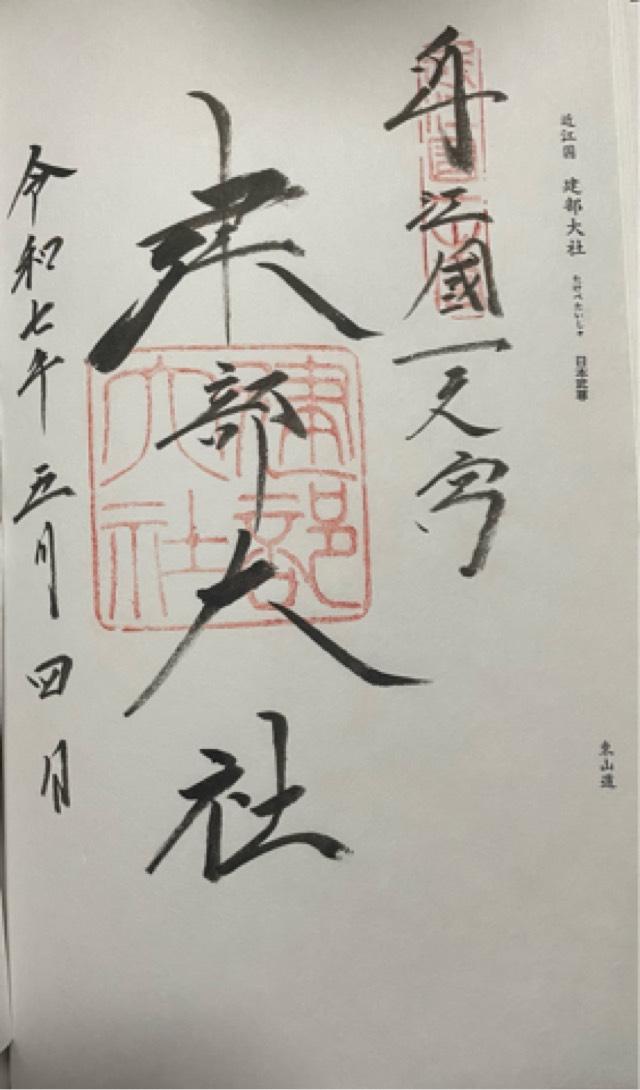 近江国 建部大社 たけべたいしゃ 日本武尊
東山道
近江國一之宮
建部大社
建部大社
令和七年五月四日